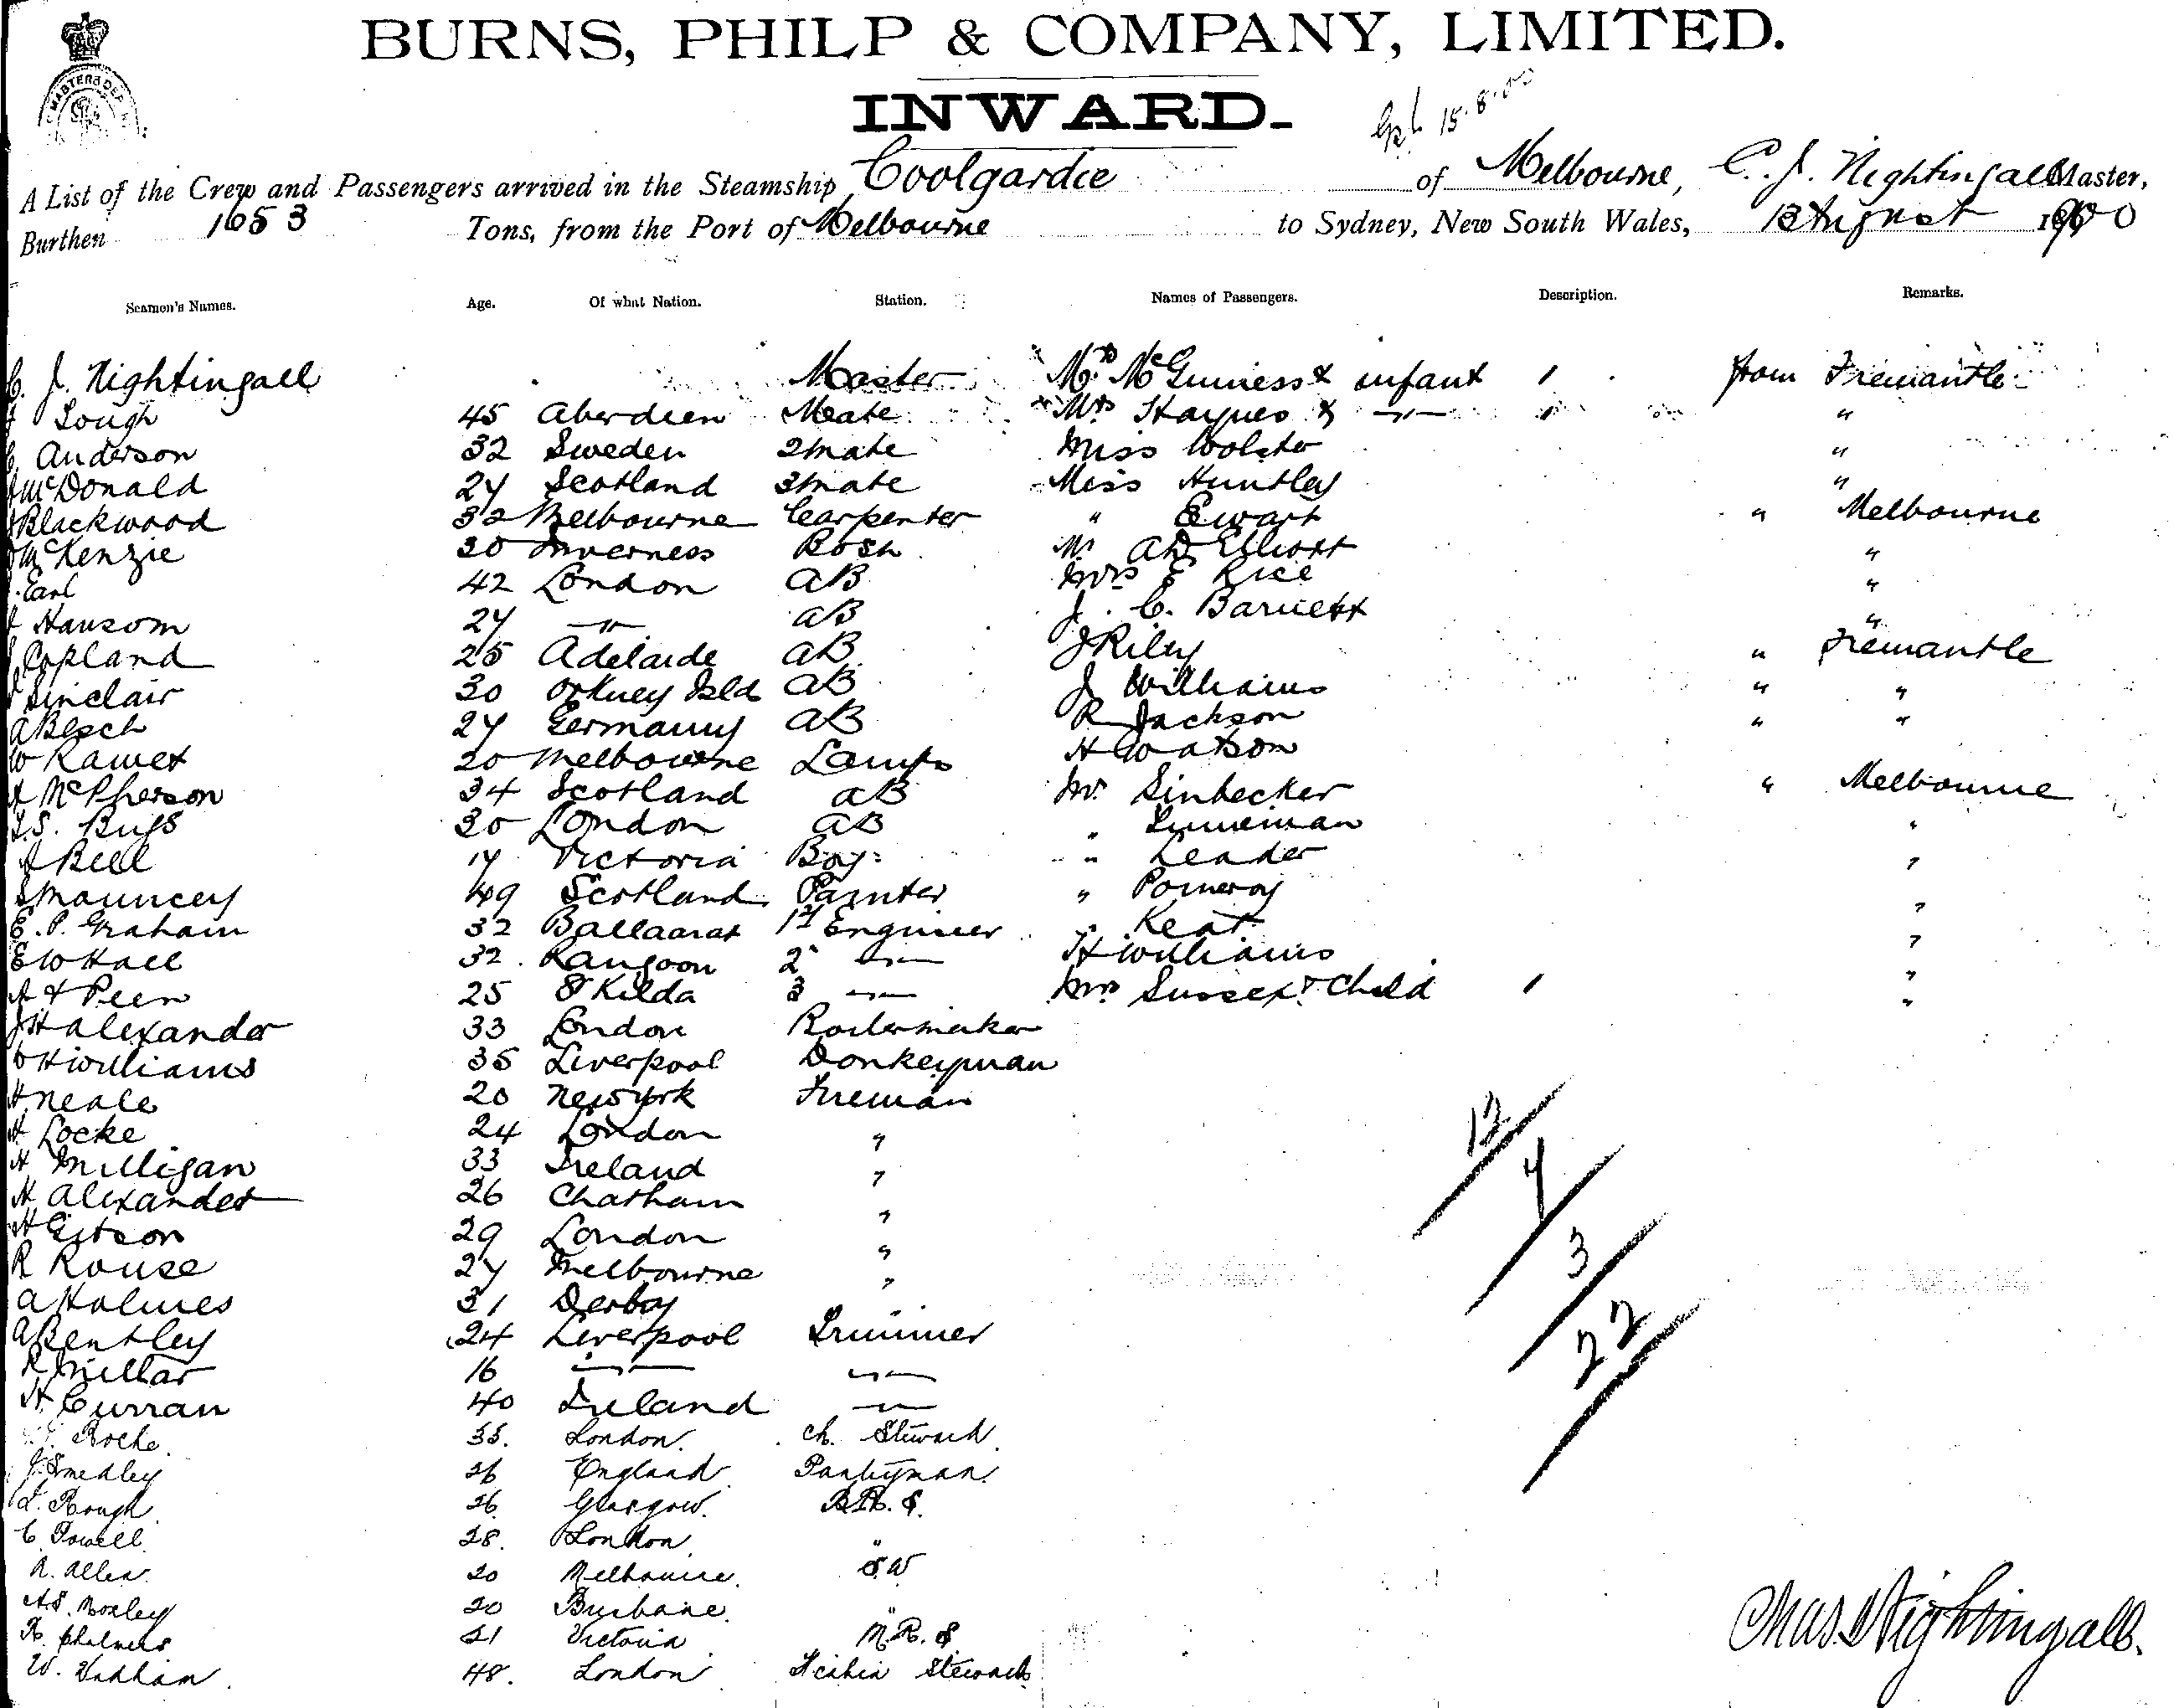 BURNS, PHILP & COMPANY, LIMITED.
INWARD.
15.8.00
A List of the Crew and Passengers arrived in the Steamship Coolgardie of Melbourne, C. J. Nightingall Master,
Burthen 1653 Tons, from the Port of Melbourne to Sydney, New South Wales, 13 August 1900
Seamen's Names. Age. Of what Nation. Station. Names of Passengers. Description. Remarks.
C. J. Nightingall Master Mrs McGuiness & infant 1 from Fremantle
Lough 45 Aberdeen Mate Mrs Haynes & —"— 1 "
Anderson 32 Sweden 2 Mate Miss "
McDonald 27 Scotland 3 Mate Miss Huntley "
Blackwood 32 Melbourne Carpenter " Ewart " Melbourne
McKenzie 30 Inverness Bosn Mr A D Elliott "
Earl 42 London AB Mrs E Rice "
Hansom 27 —"— AB J. C. Barnett "
Copland 25 Adelaide AB J Riley " Fremantle
Sinclair 30 Orkney Isld AB J Williams " "
A Besch 27 Germany AB R Jackson " "
W 20 Melbourne Lamps H Watson
A McPherson 34 Scotland AB Mr. Sinbecker " Melbourne
30 London AB " Linneman "
A Bell 17 Victoria Boy " Leader "
S Mouncey 49 Scotland Painter " Pomeroy "
E. P. Graham 32 Ballaarat 1st Engineer " Keat "
E W Hall 32 Rangoon 2 —"— H Williams "
Peen 25 St Kilda 3 —"— Mrs Sussex & Child 1 "
J H Alexander 33 London Boilermaker
H Williams 35 Liverpool Donkeyman
H Neale 20 New York Fireman
H Locke 24 London "
H Milligan 33 Ireland "
H Alexander 26 Chatham "
H 29 London "
R Rouse 27 Melbourne "
A Holmes 31 Derby "
A Bentley 24 Liverpool Trimmer
R Millar 16 —"— —"—
H. Curran 40 Ireland —"—
Roche 35. London. Ch. Steward
J. Smedley 26 England Pantryman
L. Rough 26 Glasgow. B.R. S.
C. Powell 28. London "
A. Allen 20 Melbourne. S.W
A.S. Moxley 20 Brisbane. "
R. Chalmers 21 Victoria M.R. S
W. 48. London Steward
12/
7/
3/
22/
Chas. J Nightingall.